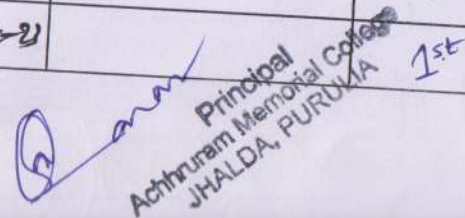 -21
1st
Principal
Achhruram Memorial College
JHALDA, PURULIA